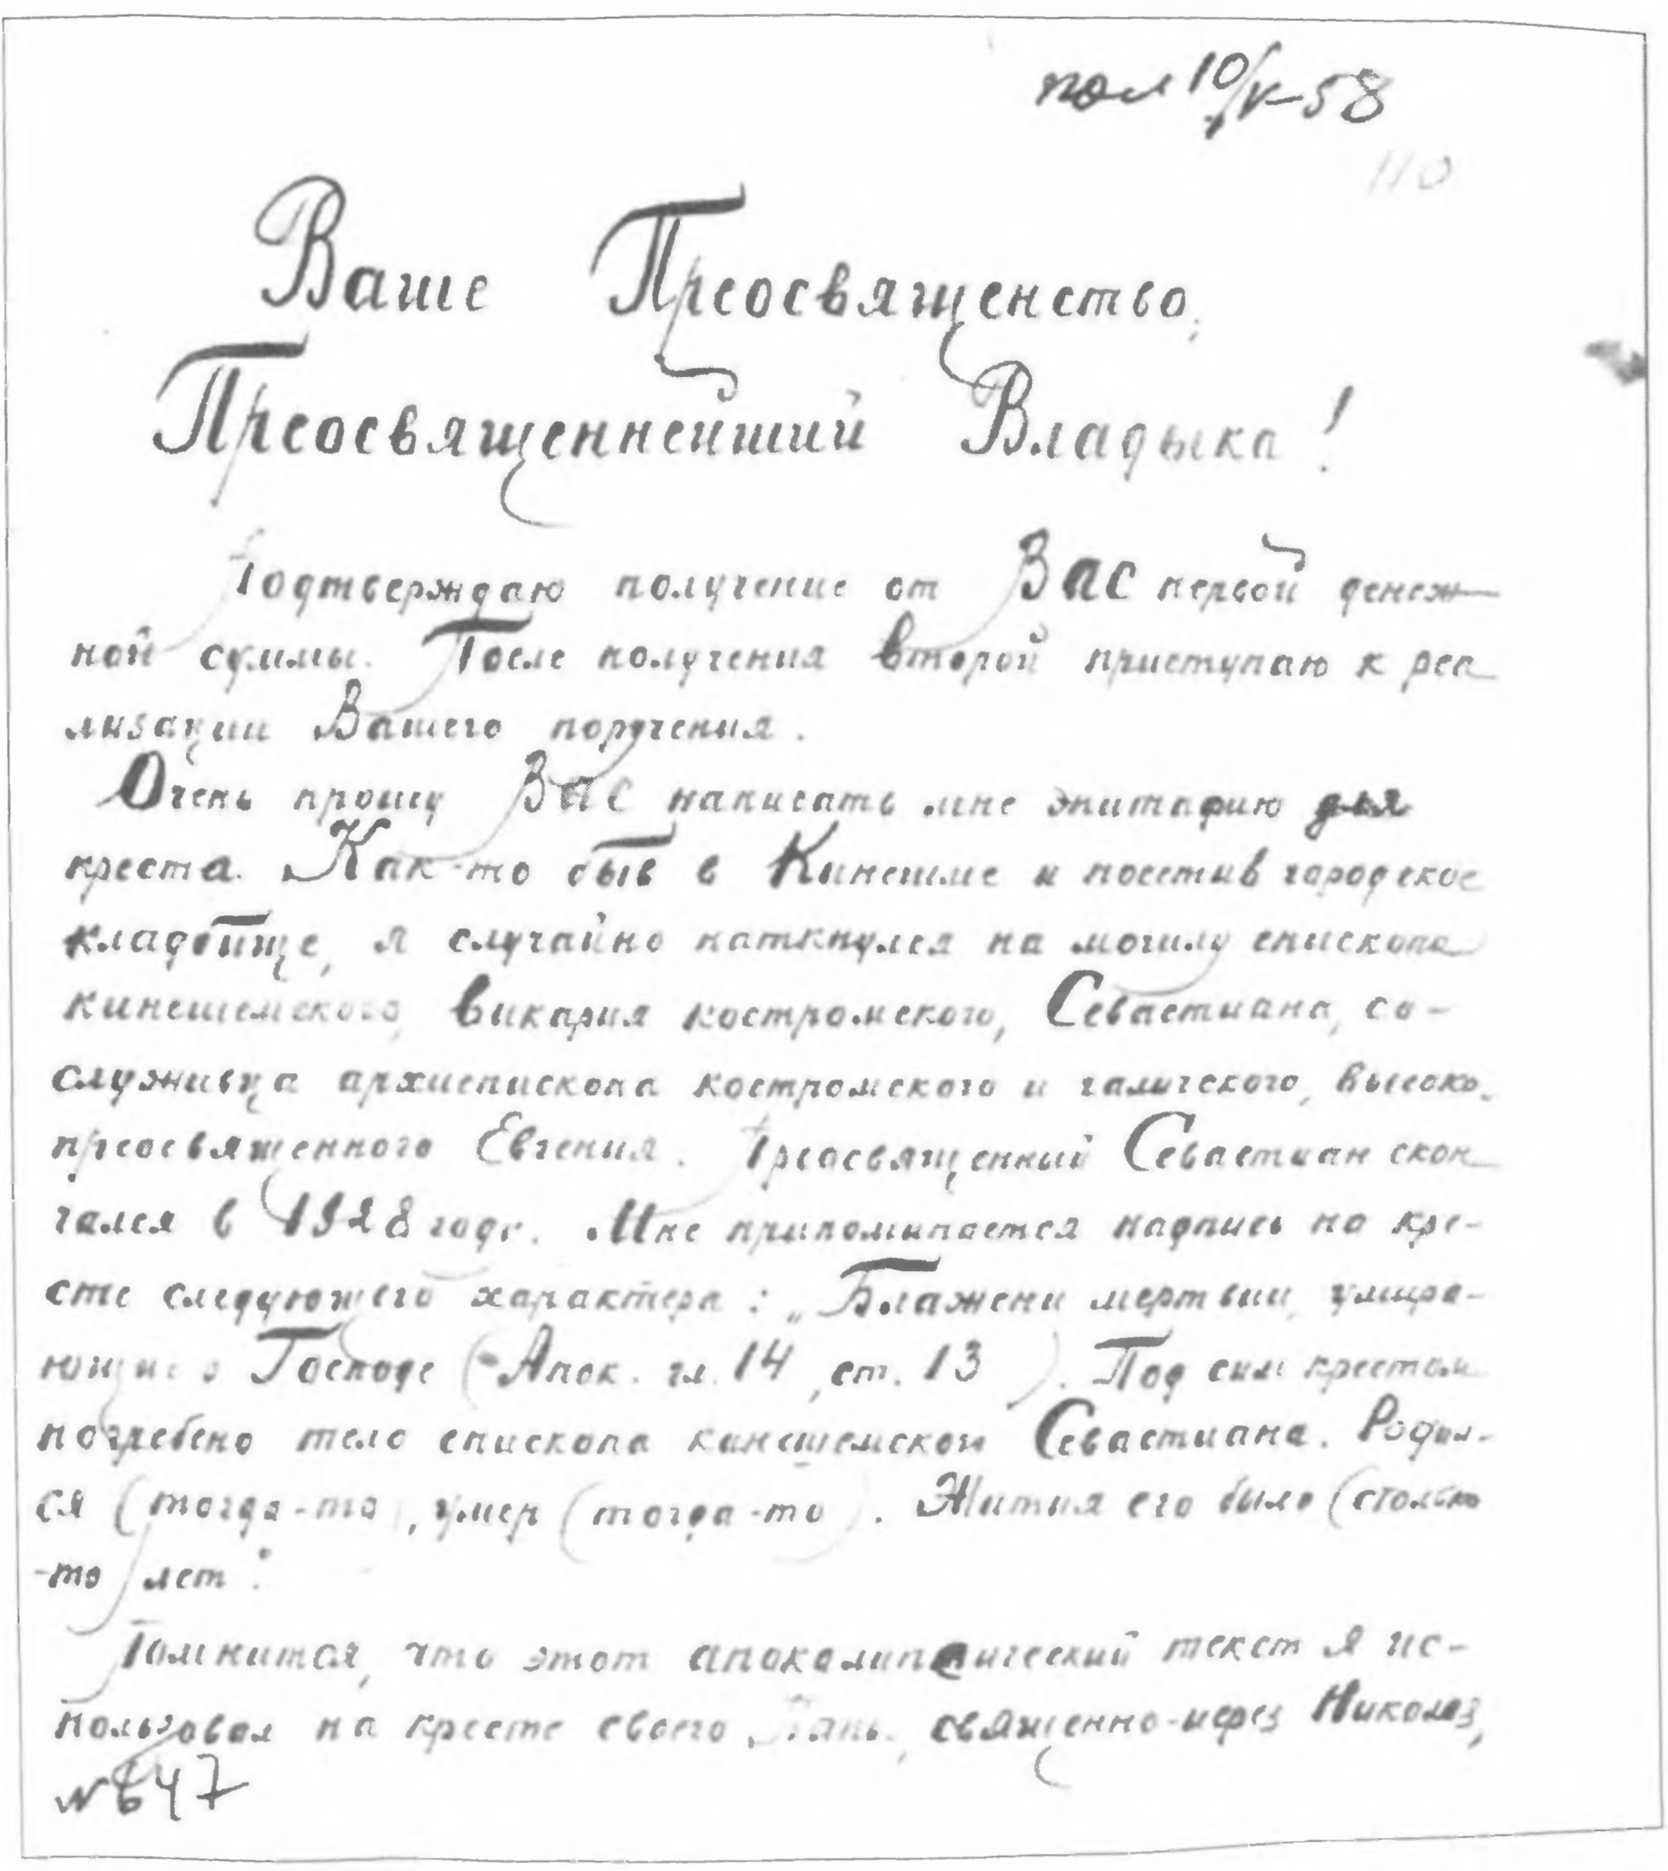 пол 10/V-58
110
Ваше Преосвященство,
Преосвященнейший Владыка!
Подтверждаю получение от ВАС первой денеж-
ной суммы. После получения второй приступаю к реа
лизации Вашего поручения.
Очень прошу ВАС написать мне эпитафию для
креста. Как-то быв в Кинешме и посетив городское
кладбище, я случайно наткнулся на могилу епископа
кинешемского, викария костромского, Севастиана, со-
служивца архиепископа костромского и галичского, высоко-
преосвященного Евгения. Преосвященный Севастиан скон
чался в 1928 году. Мне припоминается надпись на кре-
сте следующего характера: „Блажени мертвии, умира-
ющие о Господе (Апок. гл. 14, ст. 13). Под сим крестом
погребено тело епископа кинешемской Севастиана. Родил-
ся (тогда-то), умер (тогда-то). Жития его было (столько
-то) лет".
Помнится, что этот апокалиптический текст я ис-
пользовал на кресте своего священно-иерея Николая,
№ 647